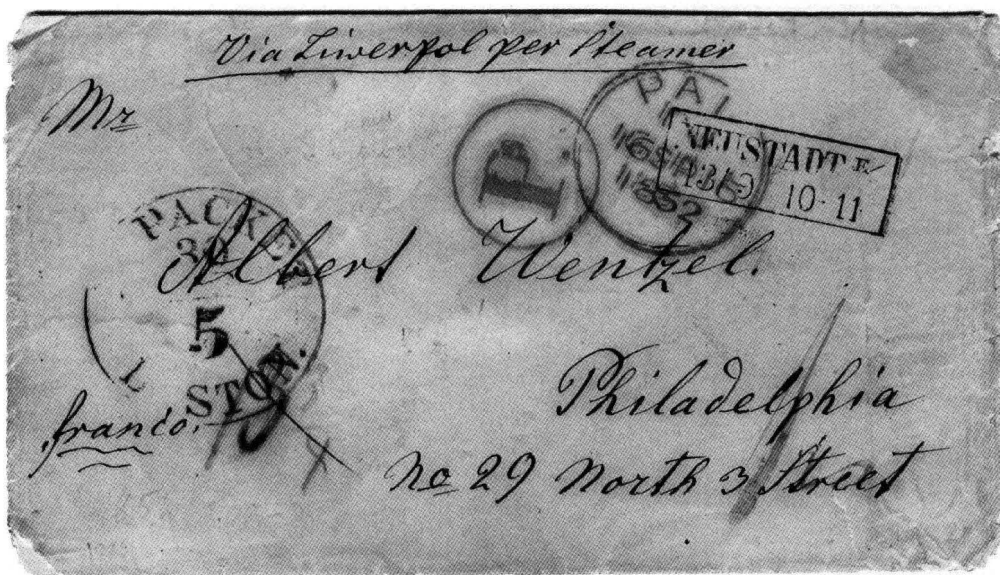 Via Liverpol per Steamer
Mr
P.
PAI
1852
NEUSTADT E/
10-11
PACKET
5
Albert Wentzel.
Philadelphia
franco.
No 29 North 3 Street